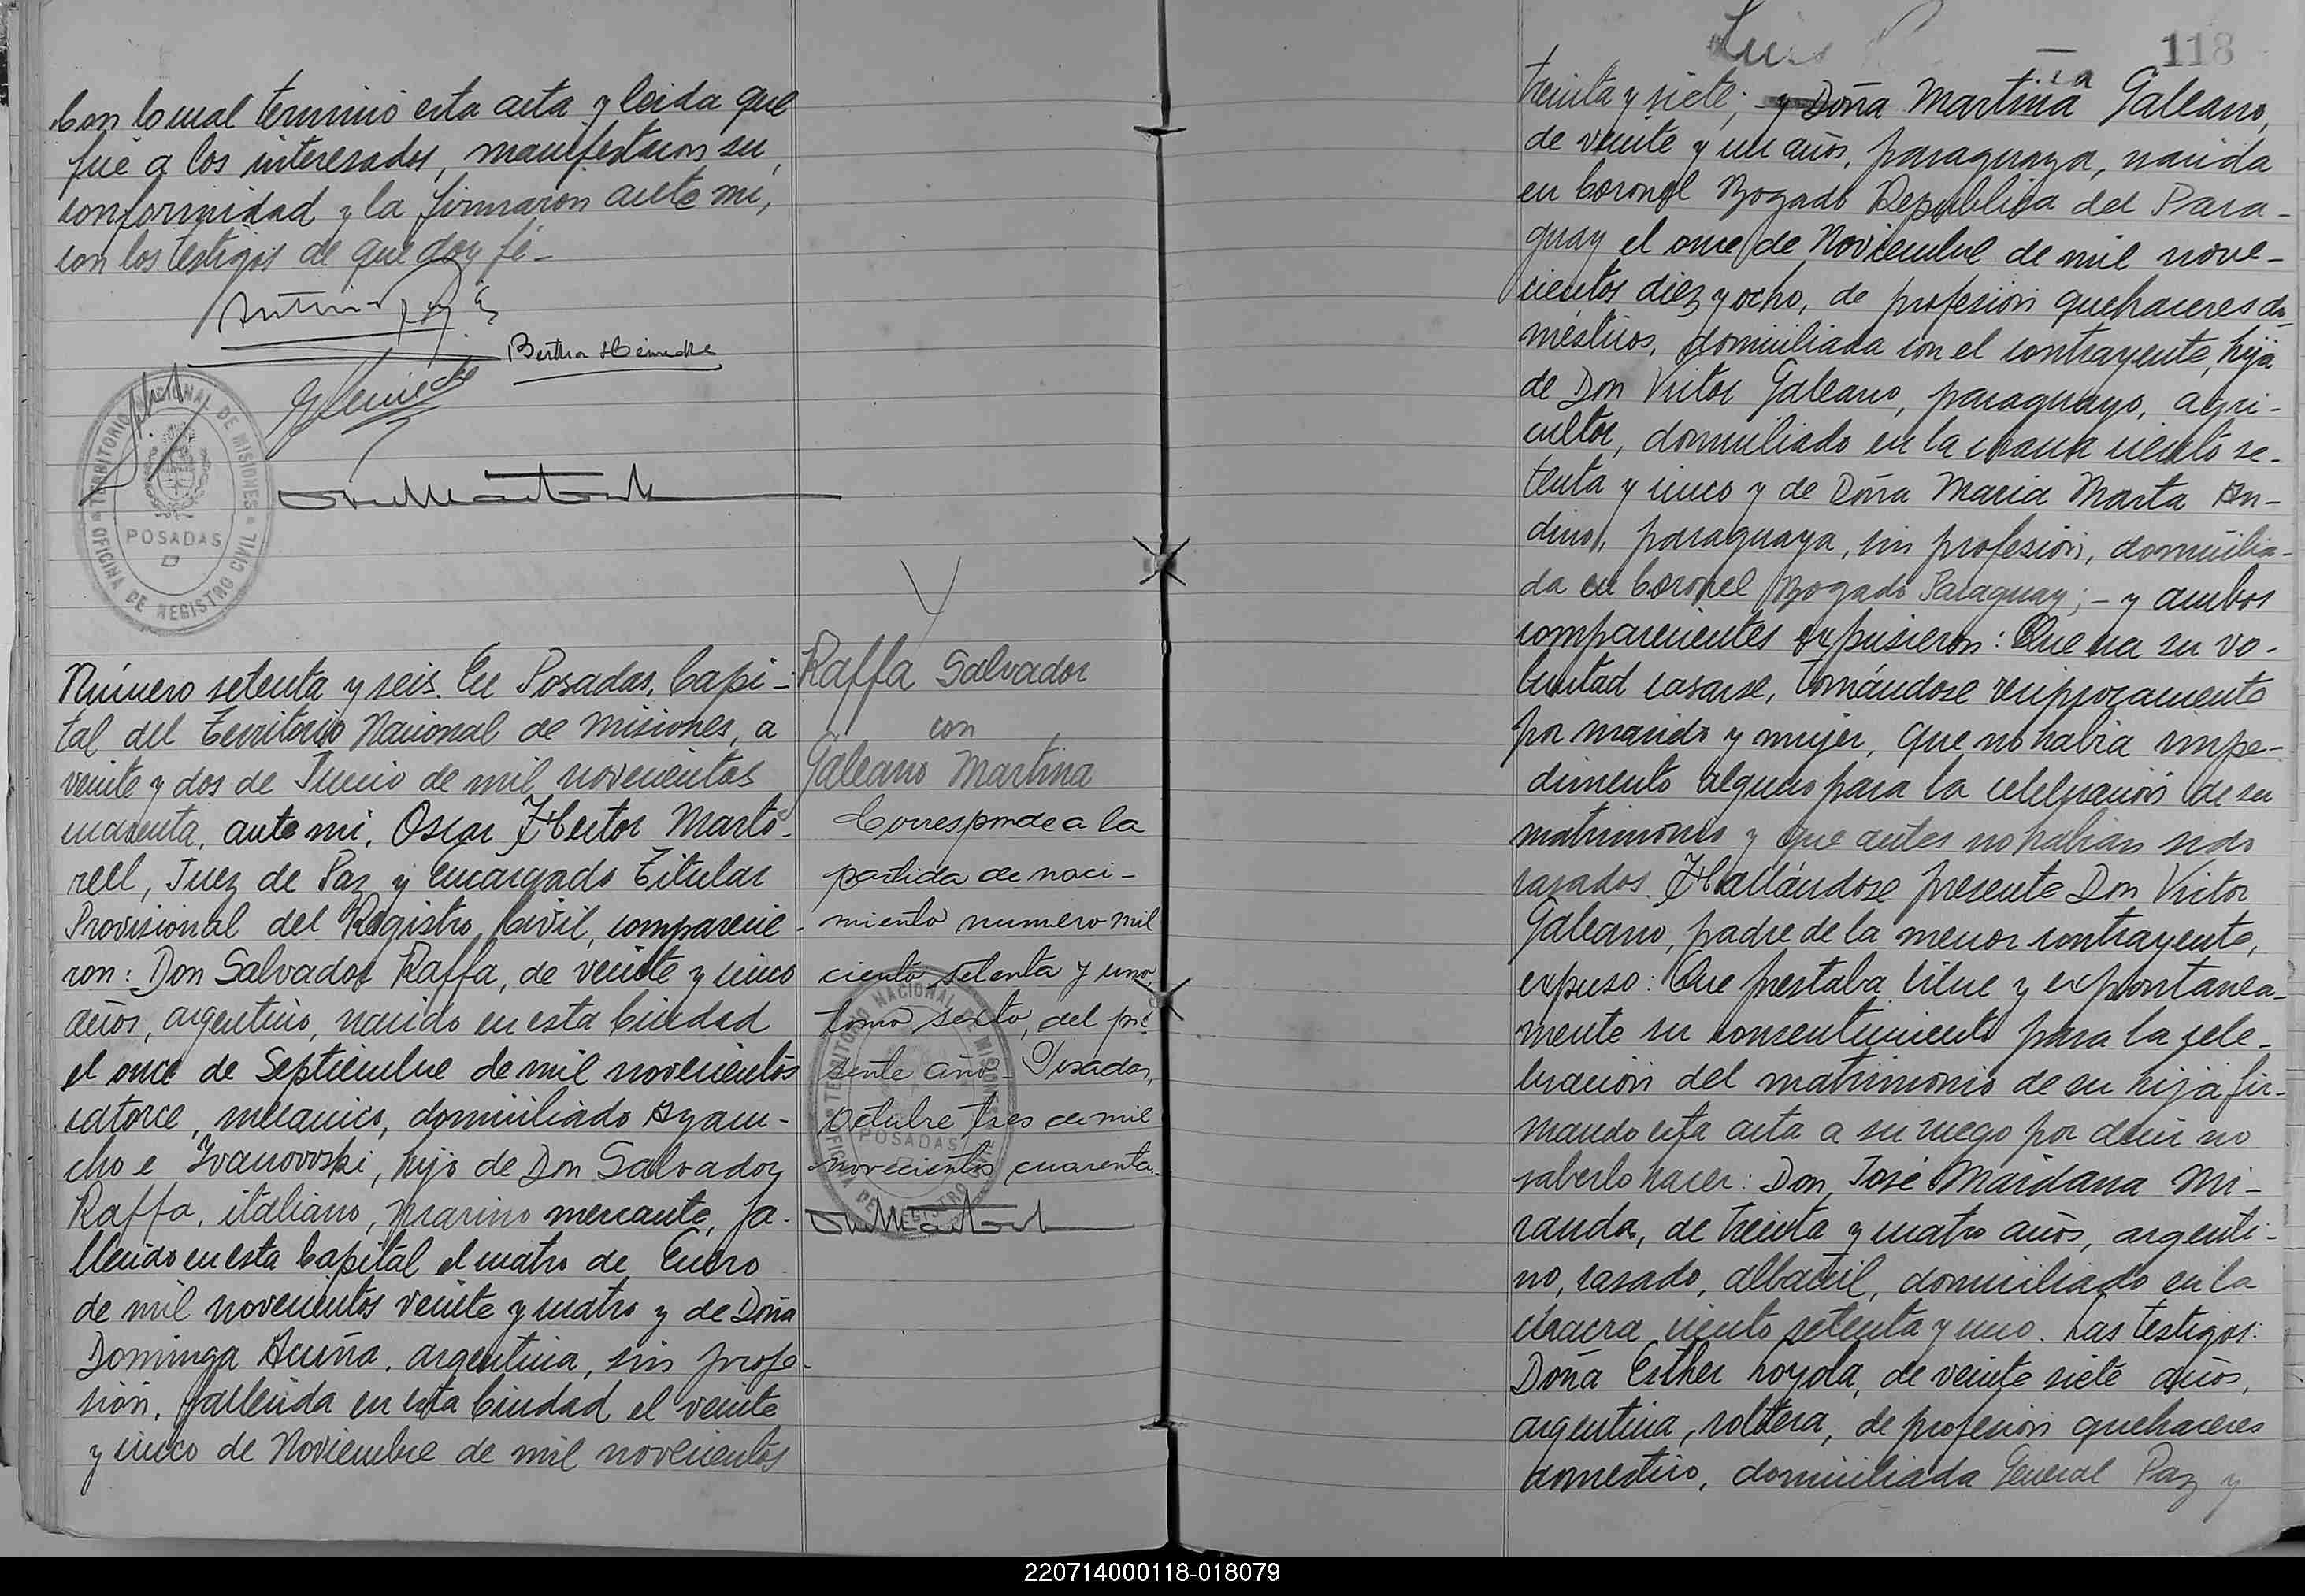 Con lo cual terminó esta acta y leida que
fué a los interesados, manifestaron su
conformidad y la firmaron ante mi,
con los testigos de que doy fé-
Bertha Heinecke
TERRITORIO NACIONAL DE MISIONES
OFICINA DE REGISTRO CIVIL
POSADAS
Número setenta y seis. En Posadas, Capi-
tal del Territorio Nacional de Misiones, a
veinte y dos de Junio de mil novecientos
cuarenta, ante mi, Oscar Hector Marto-
rell, Juez de Paz y Encargado Titular
Provisional del Registro Civil, comparecie-
ron: Don Salvador Raffa, de veinte y cinco
años, argentino, nacido en esta Ciudad
el once de Septiembre de mil novecientos
catorce, mecanico, domiciliado Ayacu-
cho e Ivanovoski, hijo de Don Salvador
Raffa, italiano, marino mercante, fa-
llecido en esta Capital el cuatro de Enero
de mil novecientos veinte y cuatro y de Doña
Dominga Acuña, argentina, sin profe-
sión, fallecida en esta Ciudad el veinte
y cinco de Noviembre de mil novecientos
Raffa Salvador
con
Galeano Martina
Corresponde a la
partida de naci-
miento numero mil
ciento setenta y uno,
tomo sexto, del pre-
sente año- Posadas,
Octubre tres de mil
novecientos cuarenta.
TERRITORIO NACIONAL DE MISIONES
OFICINA DE REGISTRO CIVIL
POSADAS
Luis
118
treinta y siete; y Doña Martina Galeano,
de veinte y un años, paraguaya, nacida
en Coronel Bogado Republica del Para-
guay el once de Noviembre de mil nove-
cientos diez y ocho, de profesión quehaceres do-
mésticos, domiciliada con el contrayente, hija
de Don Victor Galeano, paraguayo, agri-
cultor, domiciliado en la chacra ciento se-
tenta y cinco y de Doña Maria Marta An-
dino, paraguaya, sin profesión, domicilia-
da en Coronel Bogado Paraguay;- y ambos
comparecientes expusieron: Que era su vo-
luntad casarse, tomándose reciprocamente
por marido y mujer, que no habia impe-
dimento alguno para la celebración de su
matrimonio y que antes no habian sido
casados. Hallándose presente Don Victor
Galeano, padre de la menor contrayente,
expuso: Que prestaba libre y expontanea-
mente su consentimiento para la cele-
bración del matrimonio de su hija fir-
mando esta acta a su ruego por decir no
saberlo hacer: Don José Maidana Mi-
randa, de treinta y cuatro años, argenti-
no, casado, albañil, domiciliado en la
chacra ciento setenta y uno. Las testigos:
Doña Esther Loyola, de veinte siete años,
argentina, soltera, de profesión quehaceres
domestico, domiciliada General Paz y
220714000118-018079